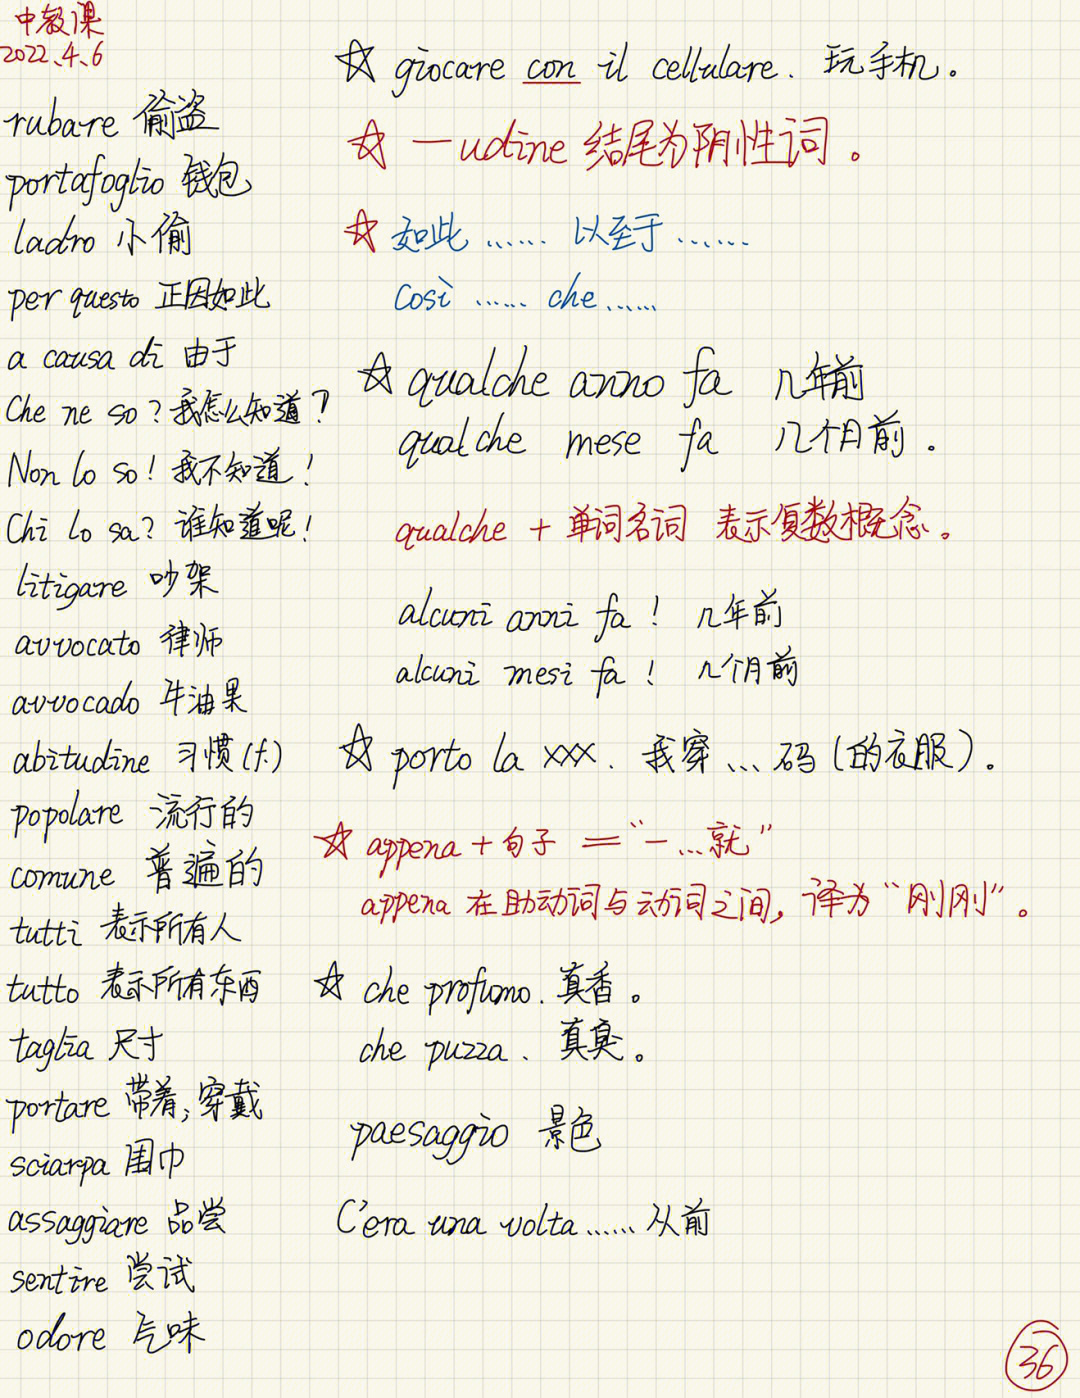 中教课
2022.4.6
rubare 偷盗
portafoglio 钱包
ladro 小偷
per questo 正因如此
a causa di 由于
Che ne so? 我怎么知道?
Non lo so! 我不知道!
Chi lo sa? 谁知道呢!
litigare 吵架
avvocato 律师
avvocado 牛油果
abitudine 习惯(f.)
popolare 流行的
comune 普遍的
tutti 表示所有人
tutto 表示所有东西
taglia 尺寸
portare 带着;穿戴
sciarpa 围巾
assaggiare 品尝
sentire 尝试
odore 气味
☆ giocare con il cellulare. 玩手机。
☆ —udine 结尾为阴性词。
☆ 如此 …… 以至于 ……
così …… che ……
☆ qualche anno fa 几年前
qualche mese fa 几个月前.
qualche + 单词名词 表示复数概念。
alcuni anni fa! 几年前
alcuni mesi fa! 几个月前
☆ porto la xxx. 我穿…码(的衣服)。
☆ appena + 句子 = "一…就"
appena 在助动词与动词之间,译为"刚刚"。
☆ che profumo. 真香。
che puzza. 真臭。
paesaggio 景色
C'era una volta …… 从前
36